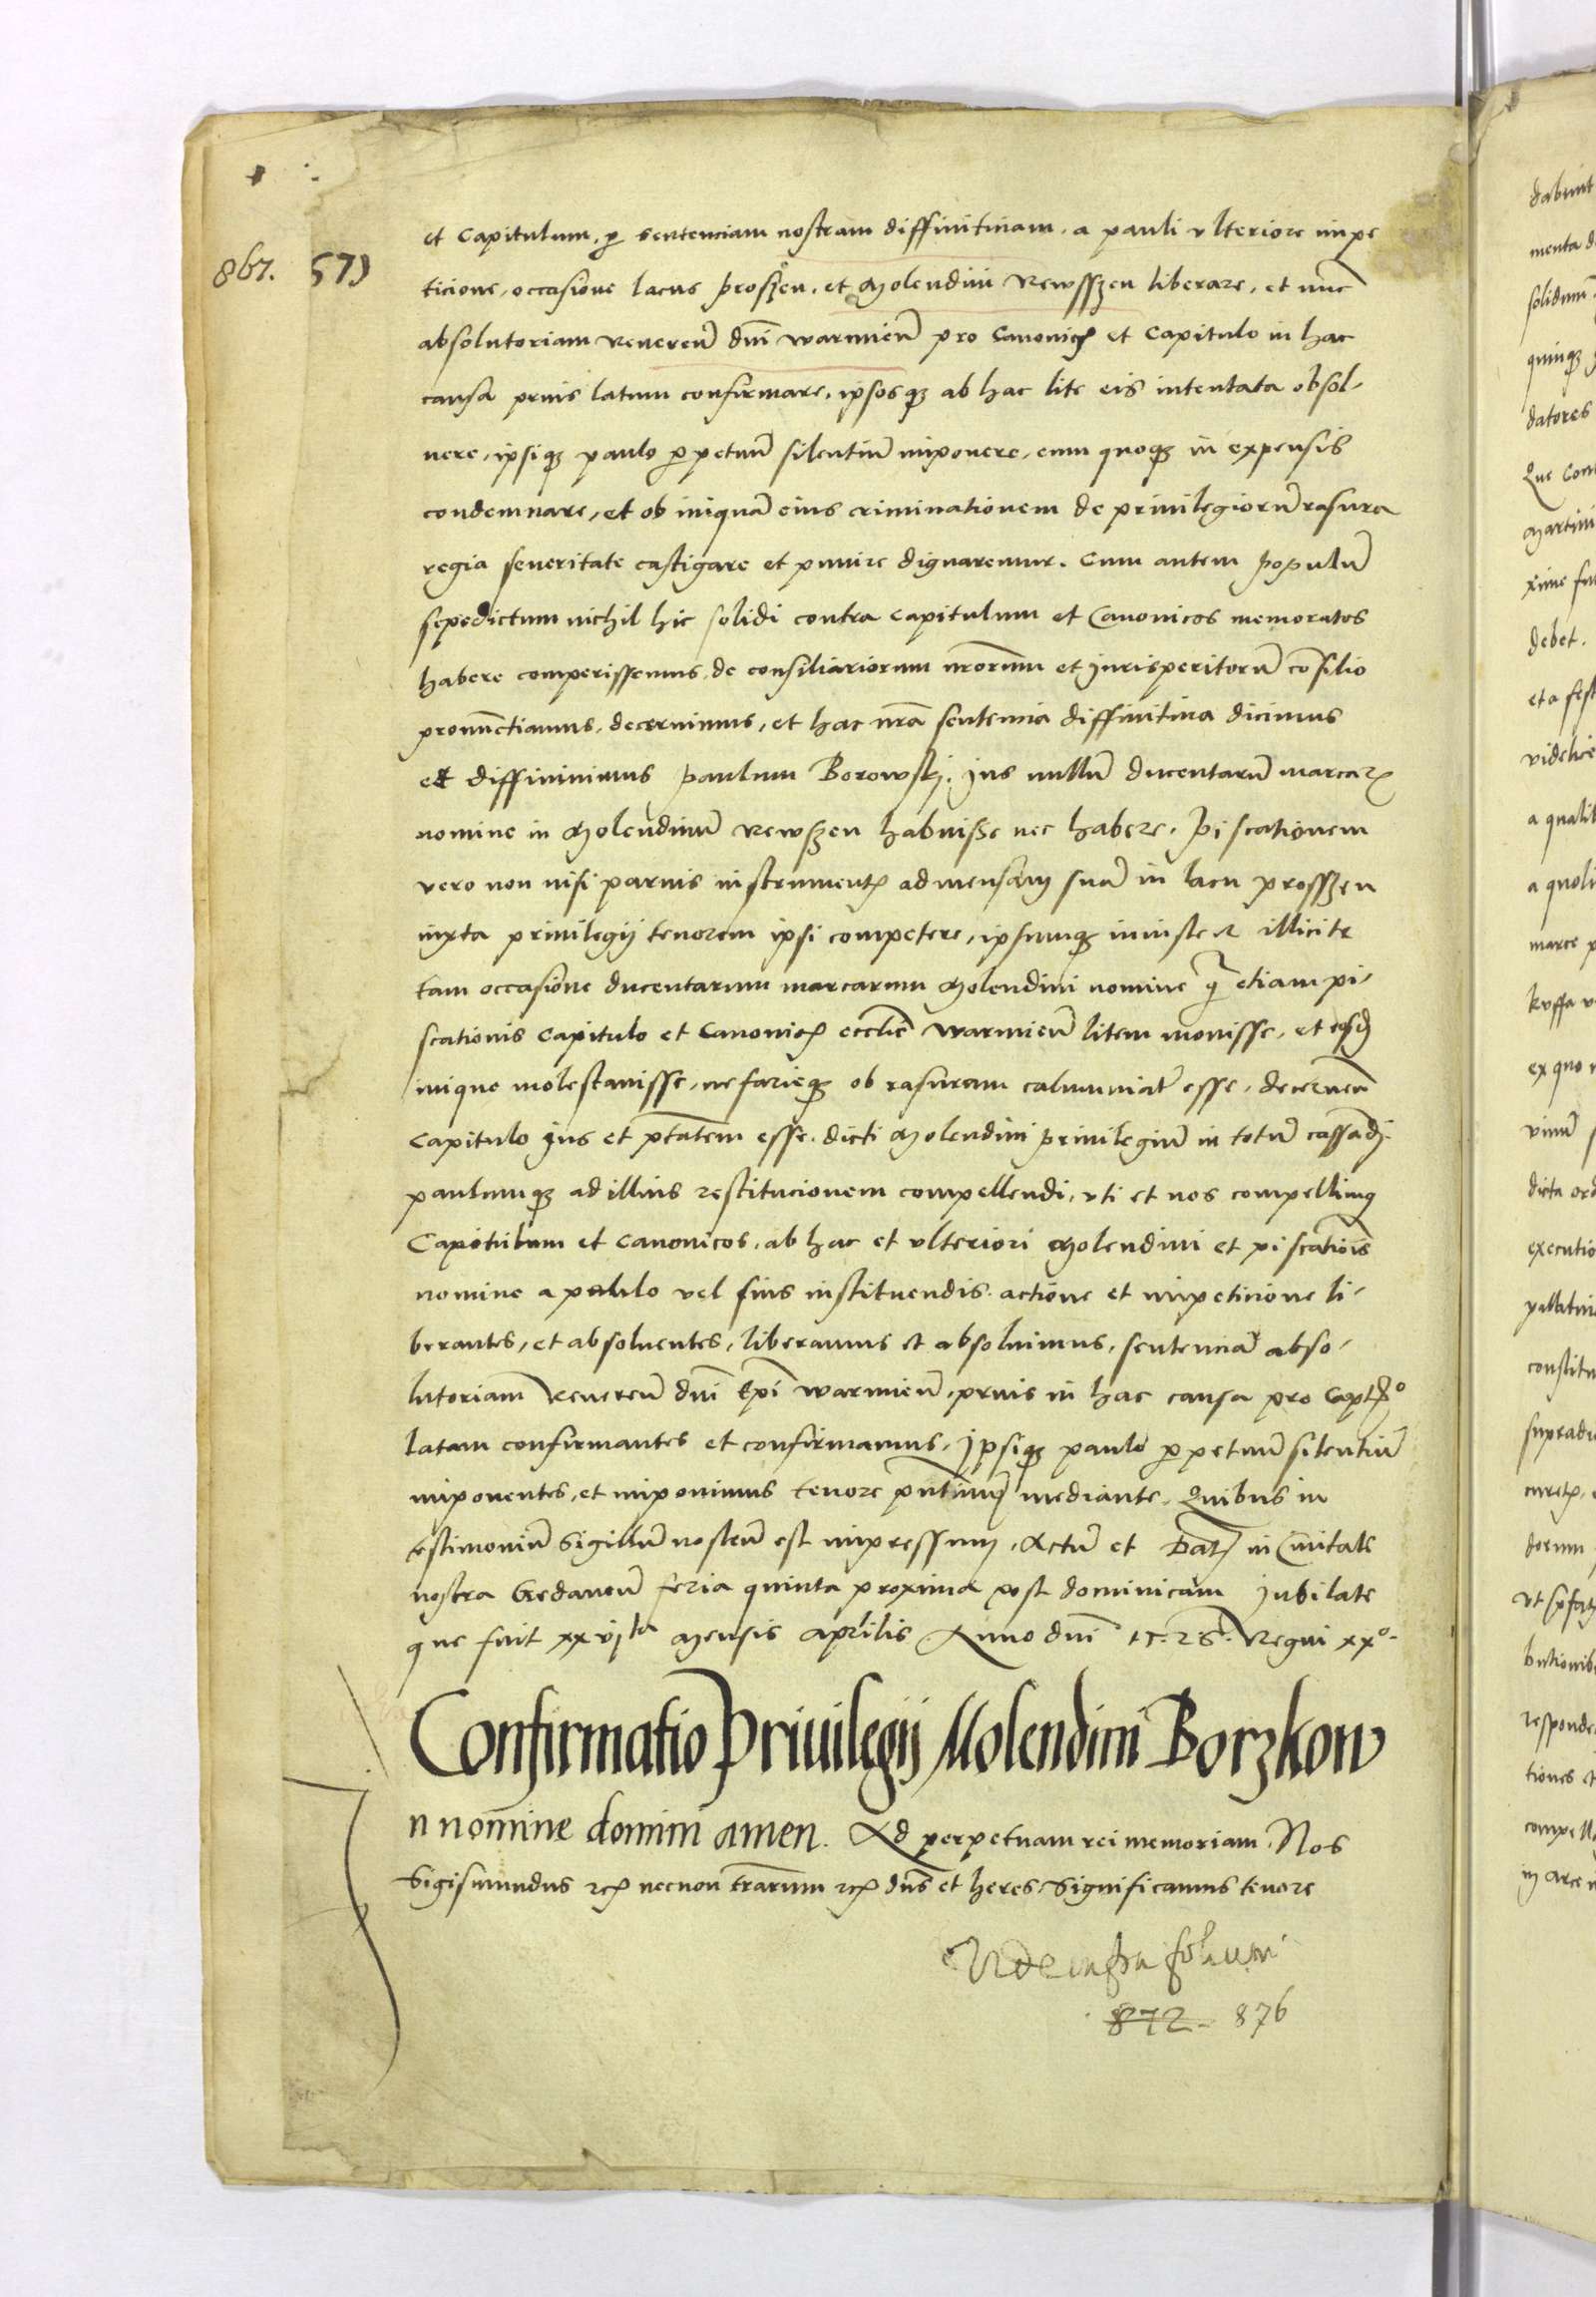 867. 579
et Capitulum, ꝑ sentenciam nostram diffinitiuam, a pauli vlteriore impe
ticione, occasione lacus proszen, et Molendini Rewsszen liberare, et nunc
absolutoriam reueren̄ dn̄i warmien̄ pro Canonicꝭ et Capitulo in hac
causa prius latum confirmare, ipsosqꝫ ab hac lite eis intentata absol-
uere, ipsiqꝫ paulo ꝑpetuū silentiū imponere, eum quoqꝫ in expensis
condemnare, et ob iniquā eius criminationem de priuilegiorū rasura
regia seueritate castigare et punire dignaremur. Cum autem populū
sepedictum nichil hic solidi contra Capitulum et Canonicos memoratos
habere comperissemus, de consiliariorum nr̄orum et Jurisperitorū cōsilio
pronunctiamus, decernimus, et hac nr̄a sentencia diffinitiua dicimus
et diffinimus paulum Borowskj. Jus nullū ducentarū marcaꝝ
nomine in Molendinū Rewszen habuisse nec habere. Piscationem
vero non nisi paruis instrumentꝭ ad mensam suā in lacu prosszen
iuxta priuilegij tenorem ipsi competere, ipsumqꝫ iniuste et illicite
tam occasione ducentarum marcarum Molendini nomine q̄ etiam pi-
scationis Capitulo et Canonicꝭ eccl̄ie warmien̄ litem mouisse, et eosdē
inique molestauisse, nefarieqꝫ ob rasuram calumniatū esse, decernen̄
Capitulo Jus et ptāt̄em esse, dicti Molendini priuilegiū in totū cassādj.
paulumqꝫ ad illius restitucionem compellendi, vti et nos compellimꝯ
Capitulum et Canonicos, ab hac et vlteriori Molendini et piscatiōis
nomine a paulo vel suis instituendis actione et impeticione li-
berantes, et absoluentes, liberamus et absoluimus, sentenciā abso-
lutoriam Reueren̄ dn̄i Ep̄i warmien̄, prius in hac causa pro Capłꝉo
latam confirmantes et confirmamus. Ipsiqꝫ paulo ꝑpetuū silentiū
imponentes, et imponimus tenore pn̄tium mediante. Quibus in
testimoniū Sigillū nostrū est impressum. Actū et Dat̄ in Ciuitate
nostra Gedanen̄ feria quinta proxima post dominicam Jubilate
que fuit xxvjta Mensis Aprilis Anno dn̄i 1526. Regni xxo.
Confirmatio Priuilegij Molendini Borzkow
n nomine domini amen. Ad perpetuam rei memoriam. Nos
Sigismundus ꝛcꝭ necnon tr̄arum ꝛcꝭ dn̄s et heres. Significamus tenore
Vide infra folium
872 - 876